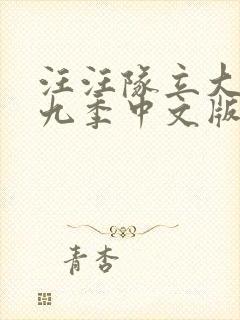 汪汪队立大
九季中文版
青杏